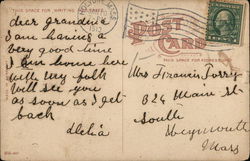 THIS SPACE FOR WRITING
dear grandma
I am having a
very good time
I am down here
with my folk
will see you
as soon as I get
back
Delia
POST
CARD
THIS SPACE FOR ADDRESS
Mrs Francis Torrey
826 Main St
South
Weymouth
Mass